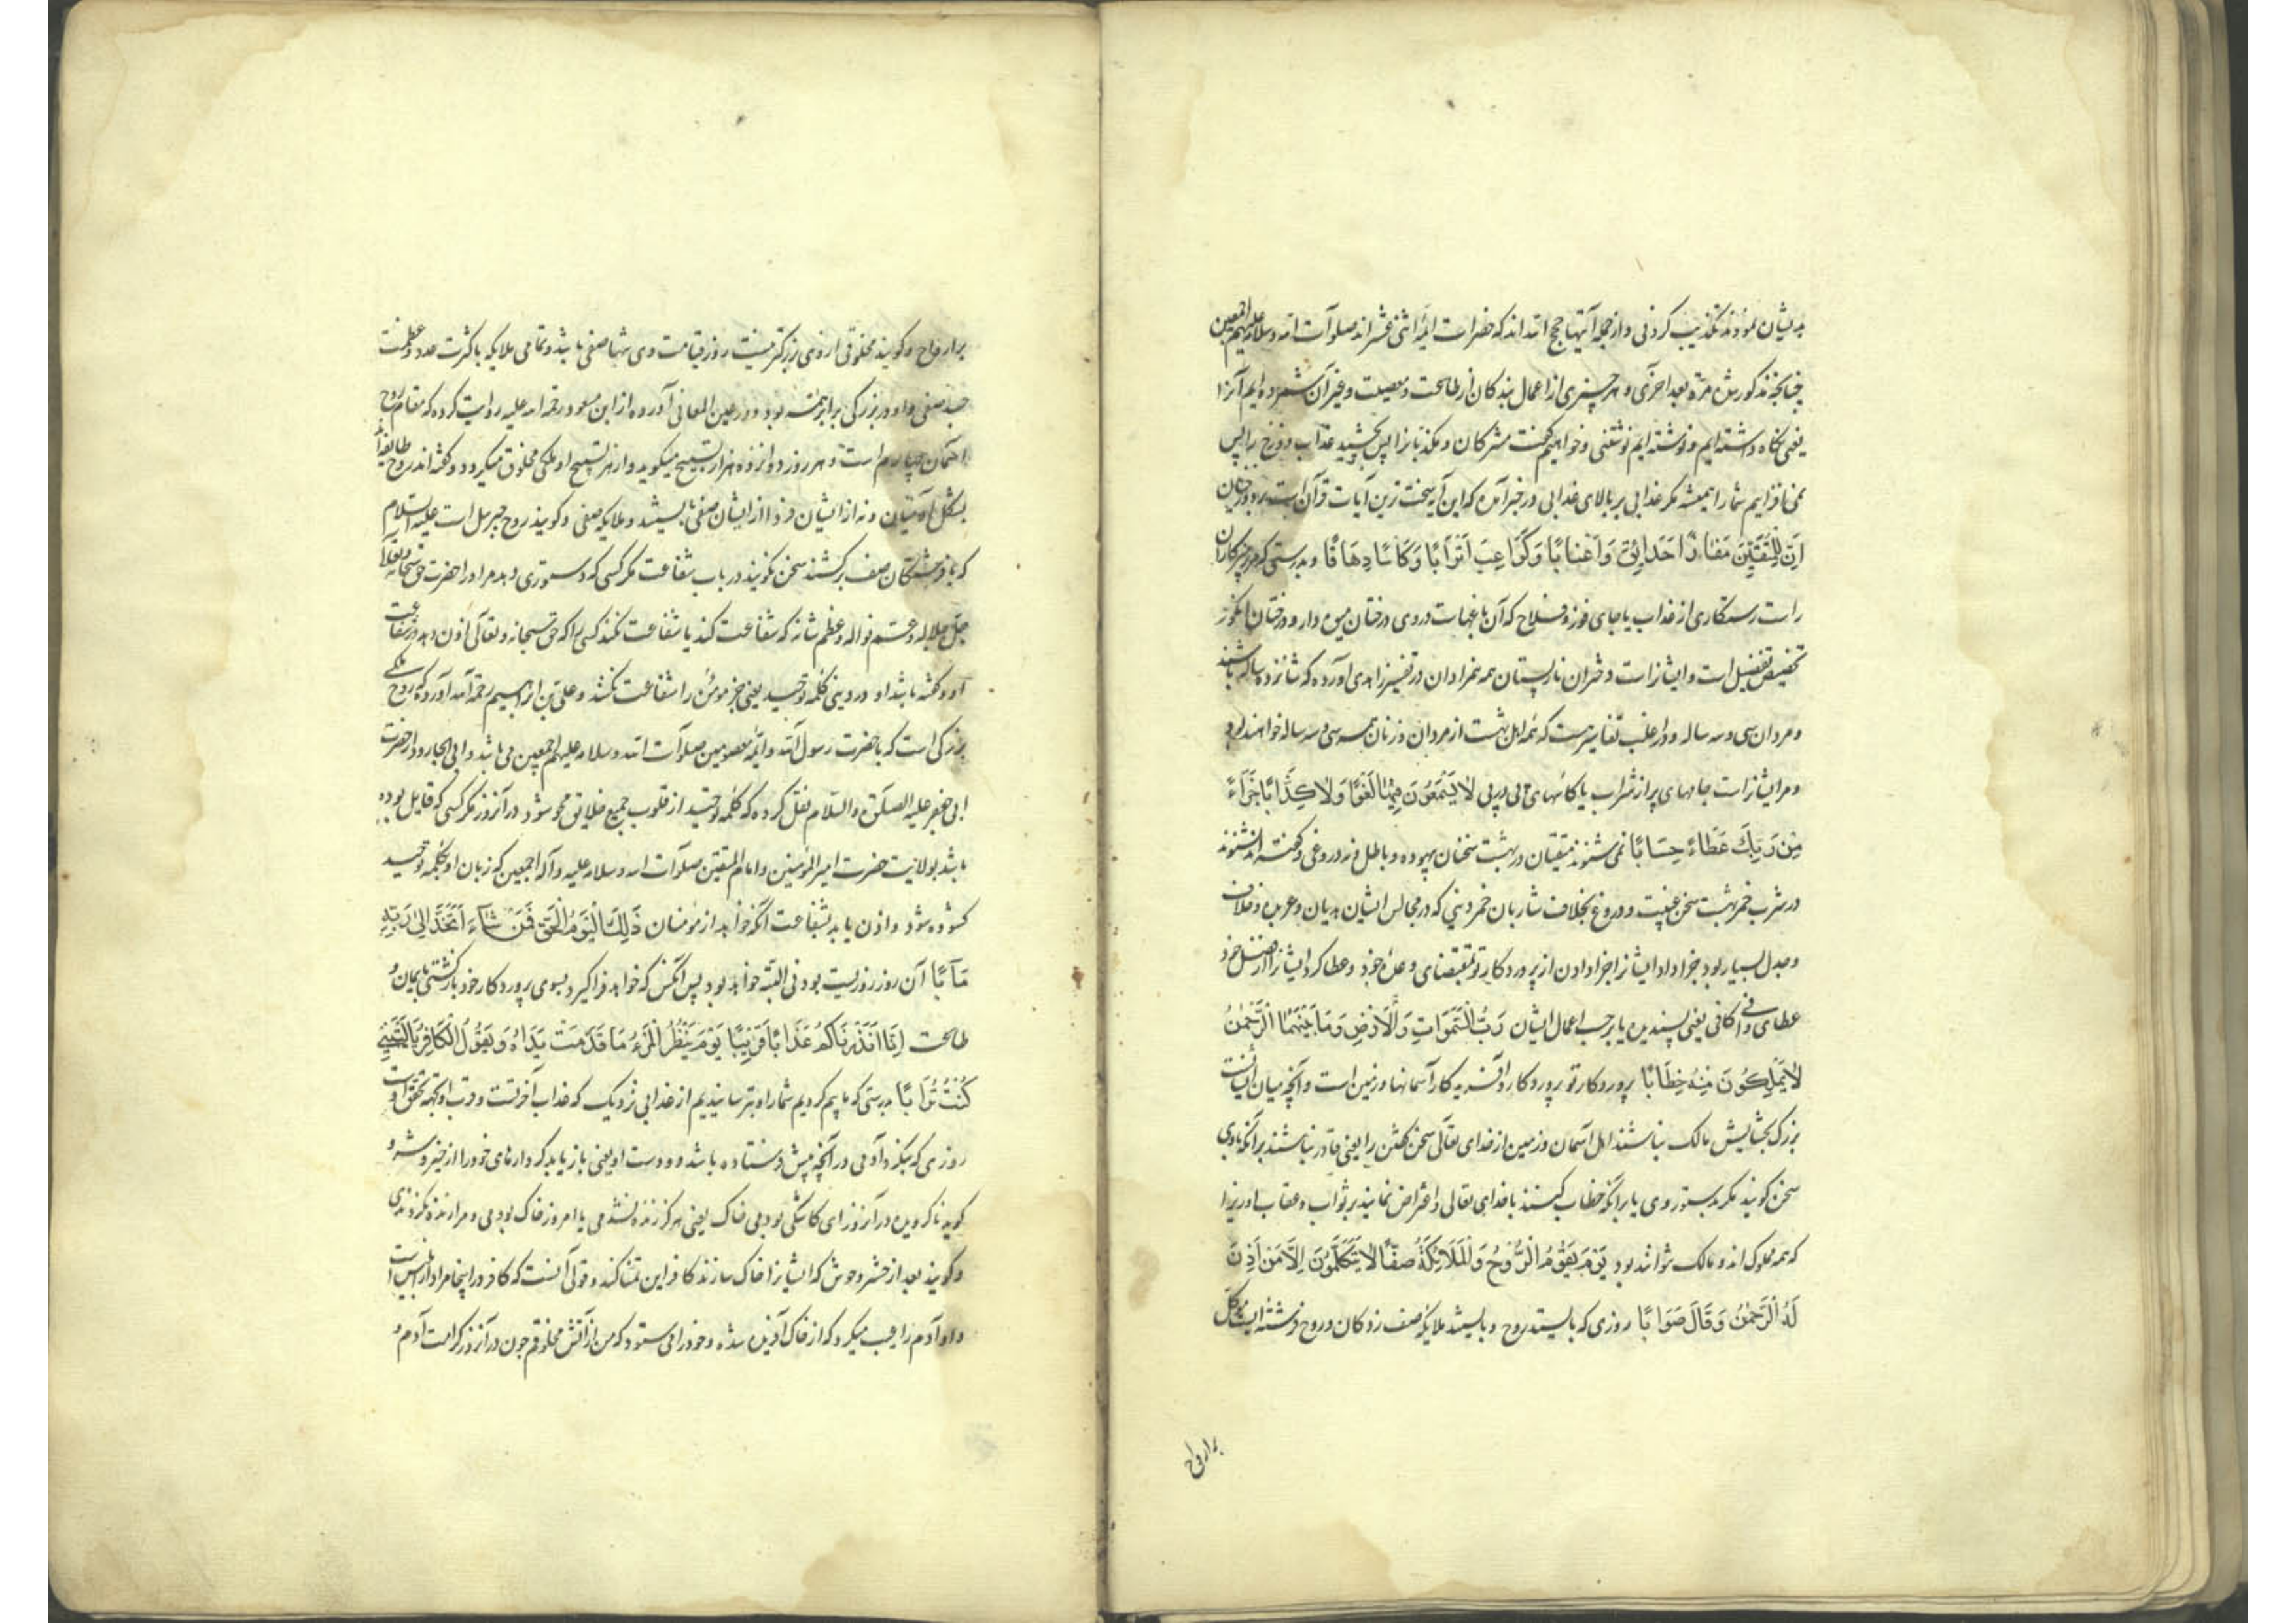 بدیشان نمودند تکذیب کردنی و از جمله آیتها حجج الله اند که حضرات ائمه اثنی عشر اند صلوات الله و سلامه علیهم اجمعین
چنانچه مذکور شد مرة بعد اخری و هر چیزی از اعمال بندکان از طاعت و معصیت و غیر آن شمرده ایم آنرا
یعنی نکاه داشته ایم و نوشته ایم نوشتنی و خواهیم کفت مشرکان و مکذبانرا پس بچشید عذاب دوزخ را پس
نمی افزاییم شما را همیشه مکر عذابی بر بالای عذابی در خبر آمده که این آیه سخت ترین آیات قرآن است بر دوزخیان
اِنَّ لِلْمُتَّقِینَ مَفَازًا حَدَائِقَ وَاَعْنَابًا وَکَوَاعِبَ اَتْرَابًا وَکَاْسًا دِهَاقًا و بدرستی که مر پرهیزکاران
راست رستکاری از عذاب یا جای فوز و فلاح که آن باغهاست در وی درختان میوه دار و درختان انکور
تخصیص تفضیل است و ایشانراست دختران نارپستان همه همزادان در تفسیر زاهدی آورده که شانزده ساله باشند
و مردان سی و سه ساله و در اغلب تفاسیر هست که همه اهل بهشت از مردان و زنان همه سی و سه ساله خواهند بود
و مر ایشانراست جامهای پر از شراب یا کاسهای پی در پی لَا یَسْمَعُونَ فِیهَا لَغْوًا وَلَا کِذَّابًا جَزَاءً
مِنْ رَبِّکَ عَطَاءً حِسَابًا نمی شنوند متقیان در بهشت سخنان بیهوده و باطل و نه دروغی و کفته اند نشنوند
در شرب خمر بهشت سخن غیبت و دروغ بخلاف شاربان خمر دنیی که در مجالس ایشان هذیان و عربده و خلاف
و جدل بسیار بود جزا داد ایشانرا جزا دادن از پروردکار تو بمقتضای وعده خود و عطا کرد ایشانرا از فضل خود
عطای وافی و کافی یعنی پسندیده یا بر حسب اعمال ایشان رَبُّ السَّمٰوَاتِ وَالْاَرْضِ وَمَا بَیْنَهُمَا الرَّحْمٰنُ
لَا یَمْلِکُونَ مِنْهُ خِطَابًا پروردکار تو پروردکار و آفریدکار آسمانها و زمین است و آنچه میان ایشانست
بزرک بخشایش مالک نباشند اهل آسمان و زمین از خدای تعالی سخن کفتن را یعنی قادر نباشند بر آنکه با وی
سخن کویند مکر بدستوری وی یا بر آنکه خطاب کنند با خدای تعالی و اعتراض نمایند بر ثواب و عقاب او زیرا
که همه مملوک اند و مالک نتوانند بود یَوْمَ یَقُومُ الرُّوحُ وَالْمَلَائِکَةُ صَفًّا لَا یَتَکَلَّمُونَ اِلَّا مَنْ اَذِنَ
لَهُ الرَّحْمٰنُ وَقَالَ صَوَابًا روزی که بایستد روح و بایستند ملایکه صف زدکان و روح فرشته ایست موکل
بر ارواح
بر ارواح و کویند مخلوقی از وی بزرکتر نیست روز قیامت وی تنها صفی باشد و تمامی ملایکه با کثرت عدد و عظمت
جسد صفی و او در بزرکی برابر همه بود و در عین المعانی آورده از ابن مسعود رحمة الله علیه روایت کرده که مقام روح
آسمان چهارم است و هر روز دوازده هزار تسبیح میکوید و از هر تسبیح او ملکی مخلوق میکردد و کفته اند روح طایفه اند
بشکل آدمیان و نه از ایشان فردا از ایشان صفی بایستند و ملایکه صفی و کویند روح جبریل است علیه السلام
که با فرشتکان صف برکشند سخن نکویند در باب شفاعت مکر کسی که دستوری دهد مر او را حضرت حق سبحانه و تعالی
جل جلاله و عم نواله و عظم شانه که شفاعت کند یا شفاعت نکنند کسی را که حق سبحانه و تعالی اذن دهد در شفاعت
او و کفته باشد او در دینی کلمه توحید یعنی جز مومن را شفاعت نکنند و علی بن ابراهیم رحمه الله آورده که روح ملکی
بزرکی است که با حضرت رسول الله و ائمه معصومین صلوات الله و سلامه علیهم اجمعین می باشد و ابی الجارود از حضرت
ابی جعفر علیه الصلوة والسلام نقل کرده که کلمه توحید از قلوب جمیع خلایق محو شود در آنروز مکر کسی که قایل بوده
باشد بولایت حضرت امیر المؤمنین و امام المتقین صلوات الله و سلامه علیه و آله اجمعین که زبان او بکلمه توحید
کشوده شود و اذن یابد بشفاعت آنکه خواهد از مومنان ذٰلِکَ الْیَوْمُ الْحَقُّ فَمَنْ شَاءَ اتَّخَذَ اِلٰی رَبِّهِ
مَاٰبًا آن روز روزیست بودنی البته خواهد بود پس آنکس که خواهد فرا کیرد بسوی پروردکار خود بازکشتی بایمان و
طاعت اِنَّا اَنْذَرْنَاکُمْ عَذَابًا قَرِیبًا یَوْمَ یَنْظُرُ الْمَرْءُ مَا قَدَّمَتْ یَدَاهُ وَیَقُولُ الْکَافِرُ یَا لَیْتَنِی
کُنْتُ تُرَابًا بدرستی که ما بیم کردیم شما را و بترسانیدیم از عذابی نزدیک که عذاب آخرتست و قرب او بجهة تحقق اوست
روزی که بنکرد آدمی در آنچه پیش فرستاده باشد دو دست او یعنی باز یابد کردارهای خود را از خیر و شر و
کوید ناکرویده در آنروز ای کاشکی بودمی خاک یعنی هرکز زنده نشدمی یا امروز خاک بودمی و مرا زنده نکردندی
و کویند بعد از حشر وحوش که ایشانرا خاک سازند کافر این تمنا کند و قولی آنست که کافر در اینجا مراد ابلیس است
و او آدم را عیب میکرد که از خاک آفریده شده و خود را می ستود که من از آتش مخلوقم چون در آنروز کرامت آدم و